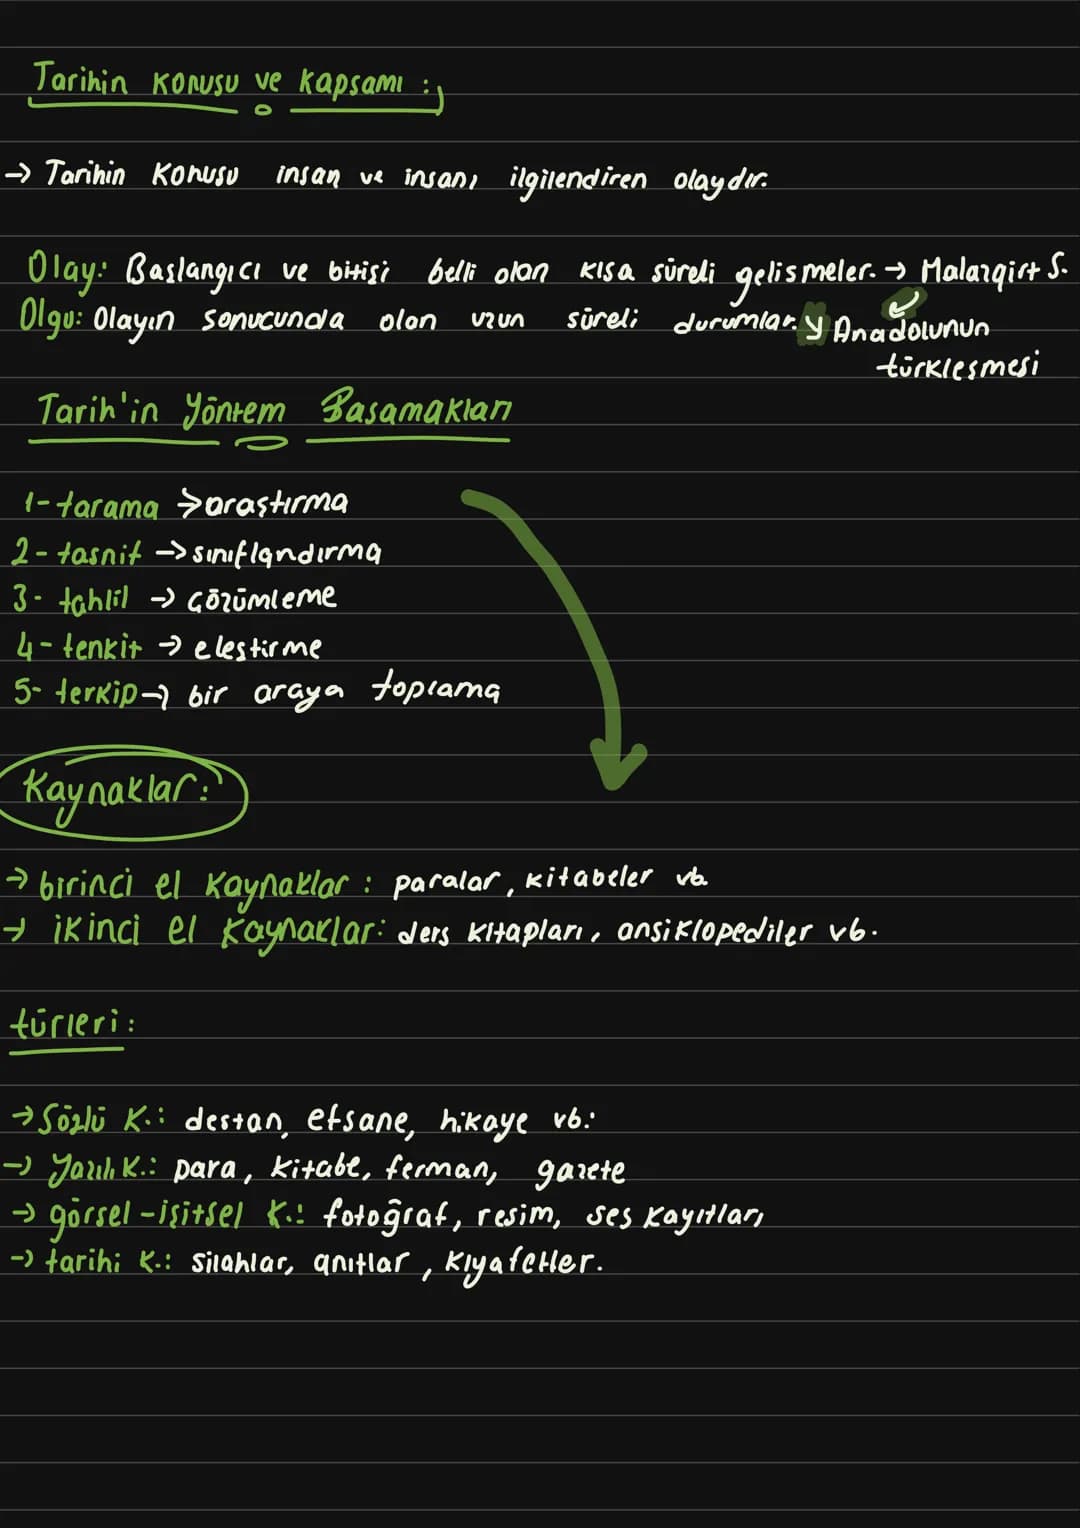 Tarihin konusu ve kapsamı :
→ Tarihin konusu insan ve insanı ilgilendiren olaydır.
Olay: Başlangıcı ve bitişi belli olan kısa süreli gelişmeler. → Malazgirt S.
Olgu: Olayın sonucunda olan uzun süreli durumlar. Anadolunun
türkleşmesi
Tarih'in Yöntem Basamakları
1- tarama → araştırma
2- tasnif → sınıflandırma
3- tahlil → Çözümleme
4- tenkit → eleştirme
5- terkip → bir araya toplama
Kaynaklar:
→ birinci el kaynaklar : paralar, kitabeler vb.
→ ikinci el kaynaklar: ders kitapları, ansiklopediler vb.
türleri:
→ Sözlü K.: destan, efsane, hikaye vb.
→ Yazılı K.: para, kitabe, ferman, gazete
→ görsel-işitsel K.: fotoğraf, resim, ses kayıtları
→ tarihi K.: silahlar, anıtlar, kıyafetler.